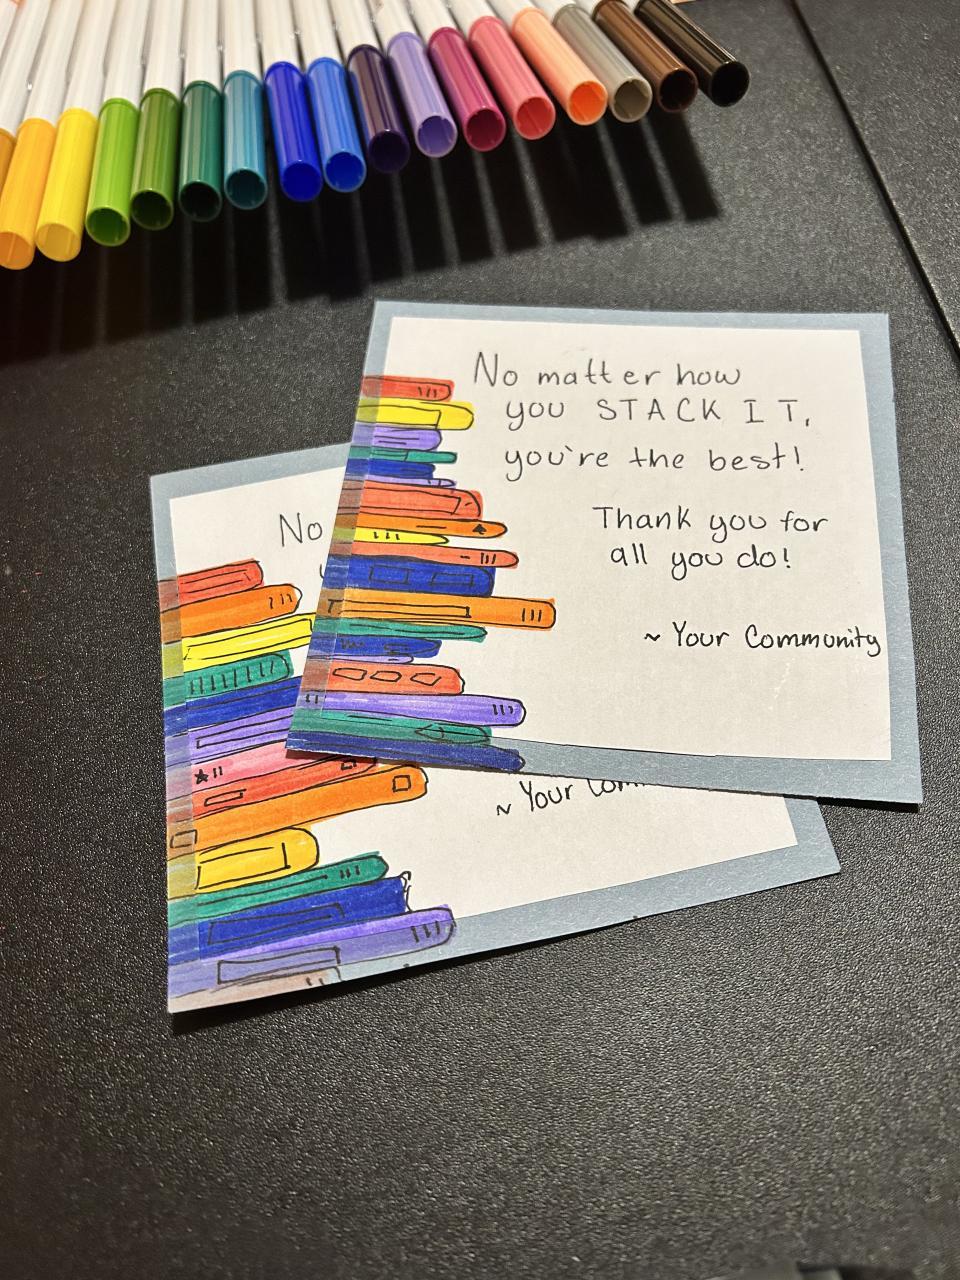 No matter how
you STACK IT,
you're the best!
Thank you for
all you do!
~ Your Community
No
~ Your